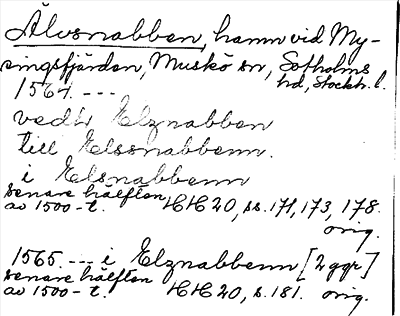 Älvsnabben, hamn vid My-
singsfjärden, Muskö sn, Sotholms
hd, Stockh. l.
1564. ---
vedh Elznabben
till Elssnabbenn.
i Elsnabbenn
senare hälften
av 1500-t. HH 20, ss. 171, 173, 178.
orig.
1565. --- i Elznabbenn [2 ggr]
senare hälften
av 1500-t. HH 20, s. 181. orig.